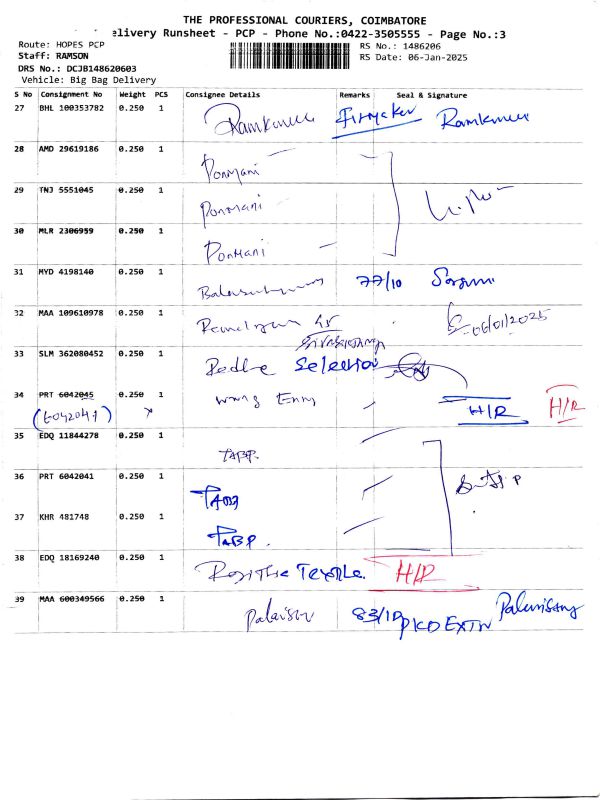 THE PROFESSIONAL COURIERS, COIMBATORE
elivery Runsheet - PCP - Phone No.:0422-3505555 - Page No.:3
Route: HOPES PCP
RS No.: 1486206
Staff: RAMSON
RS Date: 06-Jan-2025
DRS No.: DCJB148620603
Vehicle: Big Bag Delivery
S No Consignment No Weight PCS Consignee Details Remarks Seal & Signature
27 BHL 100353782 0.250 1 Ramkumar Ramkumar
28 AMD 29619186 0.250 1 Ponmani
29 TNJ 5551045 0.250 1 Ponmani
30 MLR 2306959 0.250 1 Ponmani
31 MYD 4198140 0.250 1 77/10
32 MAA 109610978 0.250 1 06/01/2025
33 SLM 362080452 0.250 1 Selection
34 PRT 6042045 0.250 1 Wrong Entry H/R H/R
(6042041)
35 EDQ 11844278 0.250 1 TABP.
36 PRT 6042041 0.250 1
37 KHR 481748 0.250 1 TABP.
38 EDQ 18169240 0.250 1 Textile. H/R
39 MAA 600349566 0.250 1 83/1D PKD EXTN Palanisamy